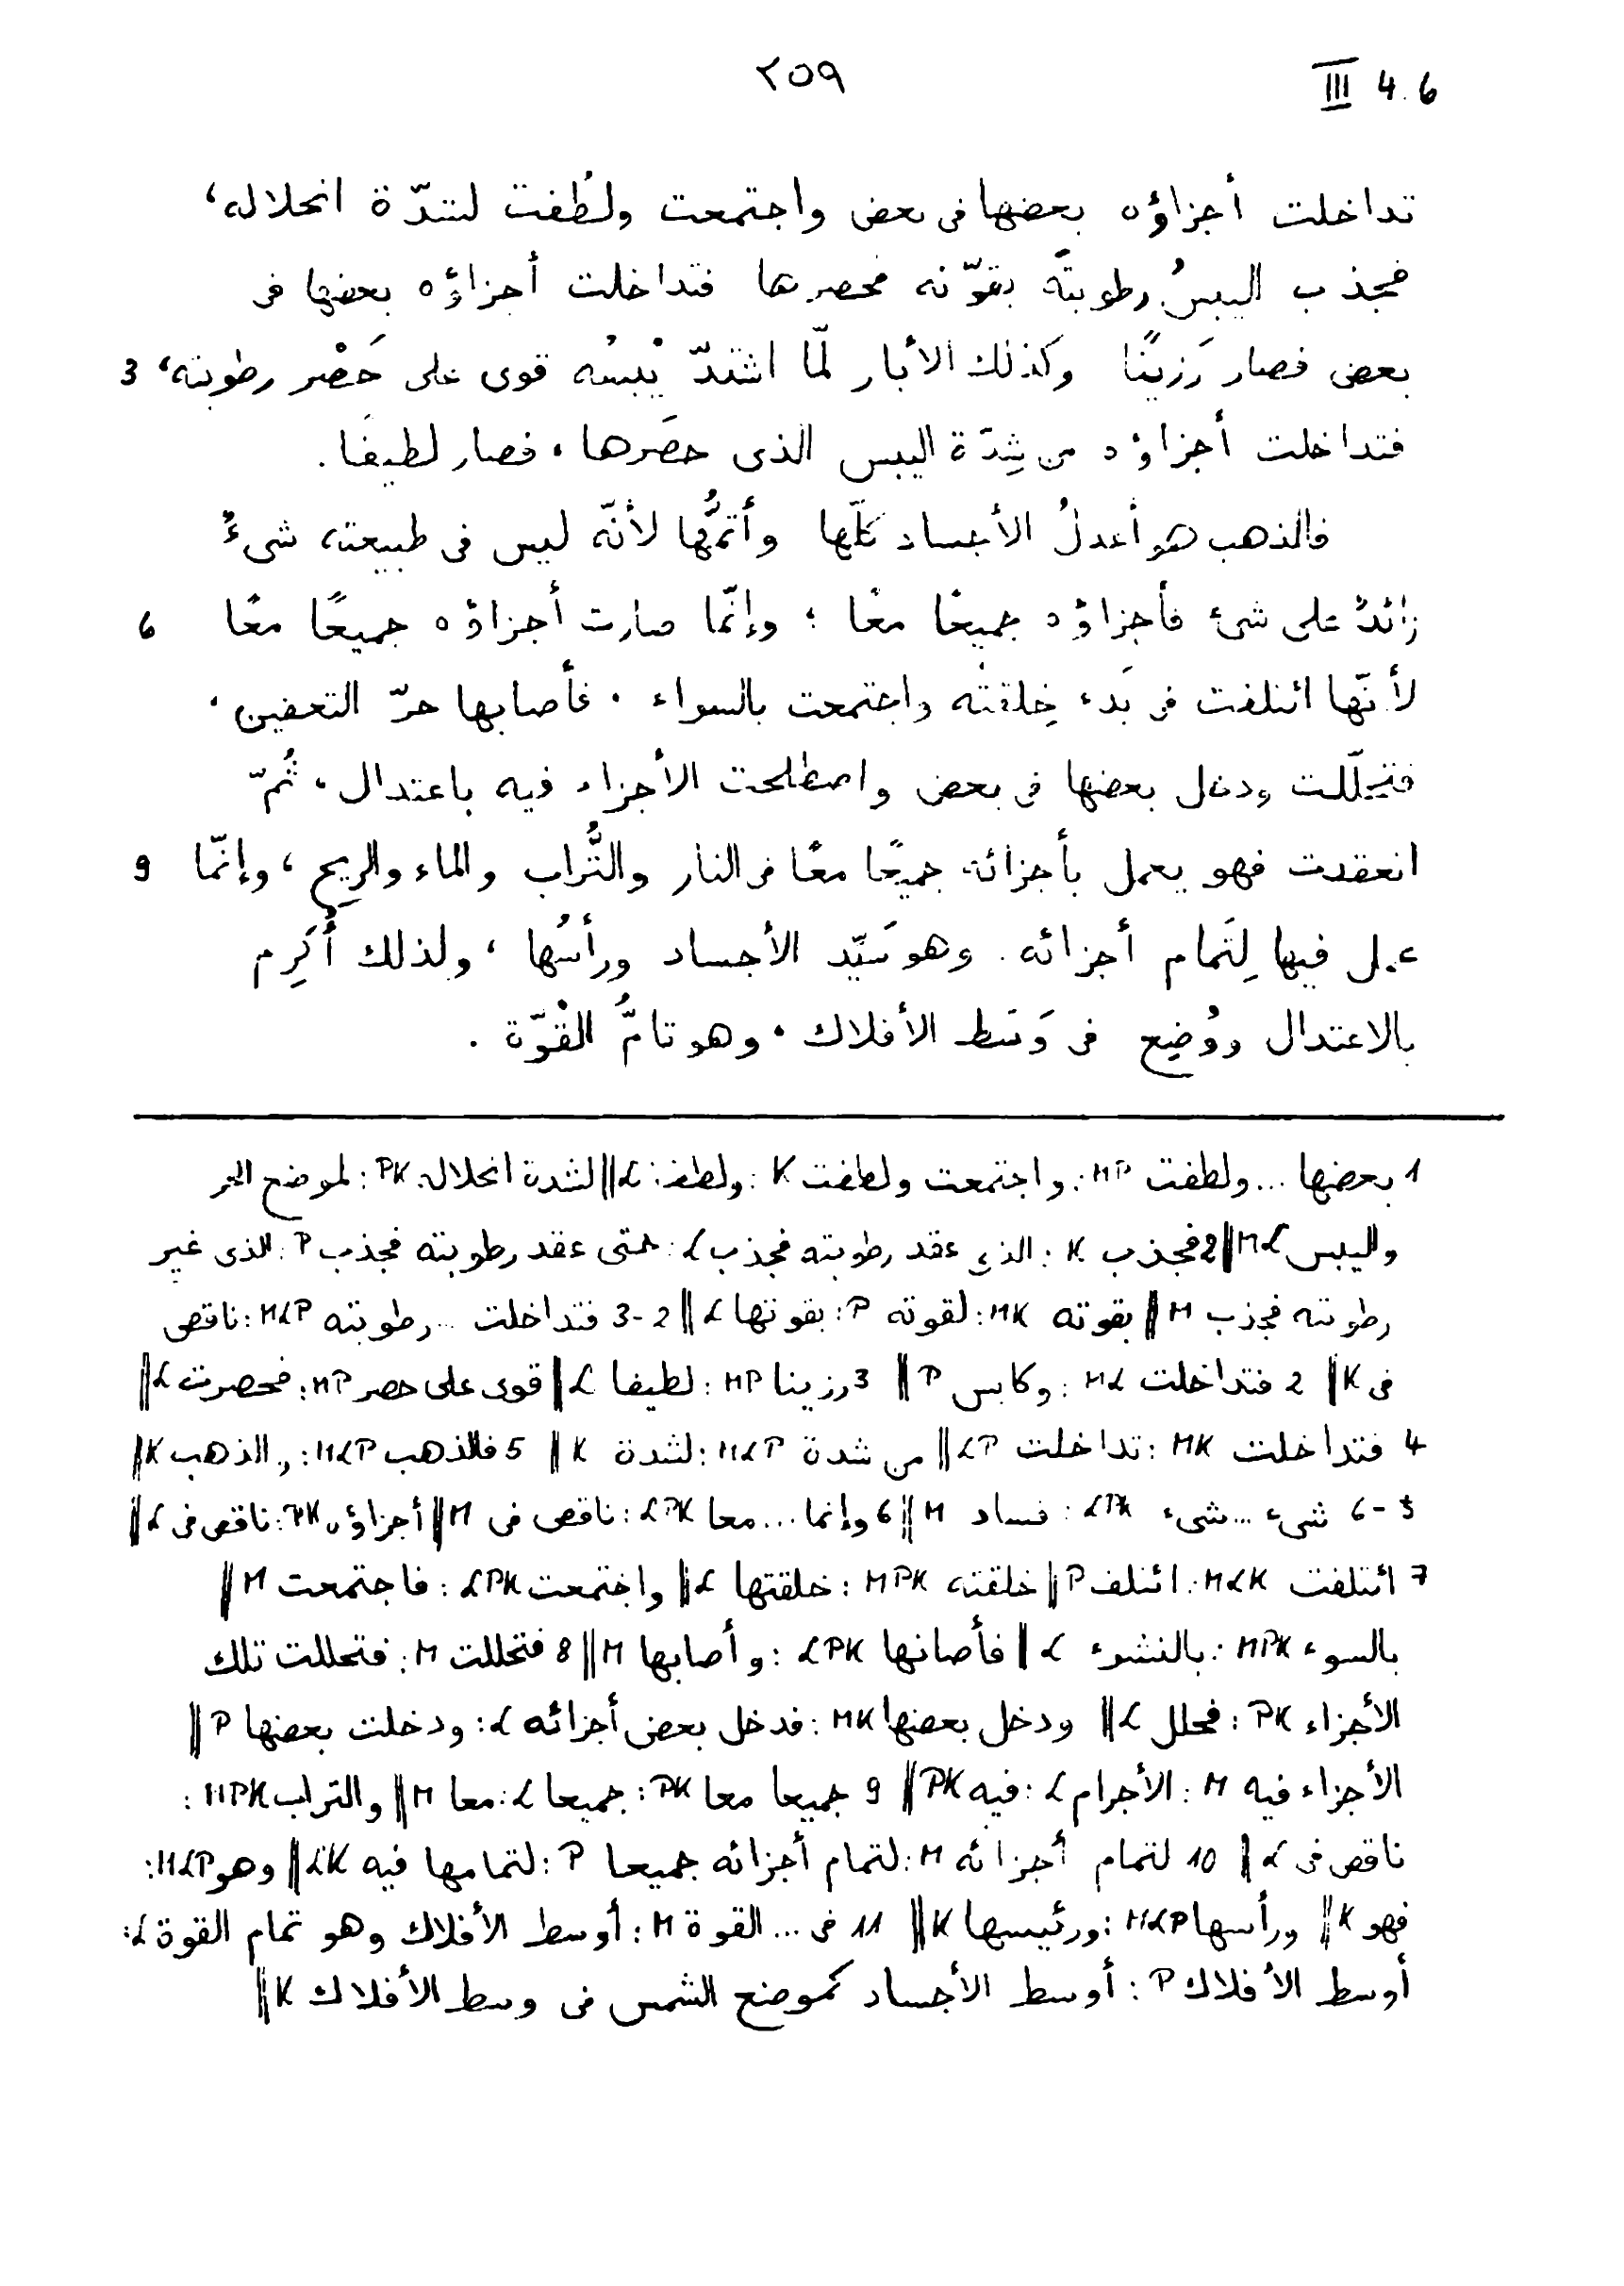 ٢٥٩
III 4.6
تداخلت أجزاؤه بعضها فى بعض واجتمعت ولطُفت لشدّة انحلاله،
فجذب اليبسُ رطوبتَه بقوّته فحصرها فتداخلت أجزاؤه بعضها فى
بعض فصار رَزينًا وكذلك الأبار لمّا اشتدّ يُبْسُه قوى على حَصْر رطوبته، 3
فتداخلت أجزاؤه من شِدّة اليبس الذى حصَرها، فصار لطيفًا.
فالذهب هو أعدلُ الأجساد كلّها وأتمُّها لأنّه ليس فى طبيعته شىءٌ
زائدٌ على شىء فأجزاؤه جميعًا معًا؛ وإنّما صارت أجزاؤه جميعًا معًا 6
لأنّها ائتلفت فى بَدء خِلقته واجتمعت بالسواء، فأصابها حرّ التعفين،
فتحلّلت ودخل بعضها فى بعض واصطلحت الأجزاء فيه باعتدال، ثُمّ
انعقدت فهو يعمل بأجزائه جميعًا معًا فى النار والتُّراب والماء والرِيح، وإنّما 9
عمل فيها لِتَمام أجزائه. وهو سَيّد الأجساد ورأسُها، ولذلك أُكرِم
بالاعتدال ووُضِع فى وَسَط الأفلاك، وهو تامُّ القْوّة.
1 بعضها ... ولطفت MP: واجتمعت ولطفت K: ولطفت L || لشدة انحلاله PK: لموضع الحر
واليبس ML || 2 فجذب K: الذى عقد رطوبته فجذب L: حتى عقد رطوبته فجذب P: الذى غير
رطوبته فجذب M || بقوته MK: لقوته P: بقوتها L || 2-3 فتداخلت ... رطوبته MLP: ناقص
فى K || 2 فتداخلت ML: وكابس P || 3 رزينا MP: لطيفا L || قوى على حصر MP: فحصرت L ||
4 فتداخلت MK: تداخلت LP || من شدة MLP: لشدة K || 5 فالذهب MLP: والذهب K ||
5-6 شىء ... شىء LPK: فساد M || 6 وإنما ... معا LPK: ناقص فى M || أجزاؤه PK: ناقص فى L ||
7 ائتلفت MLK: ائتلف P || خلقته MPK: خلقتها L || واجتمعت LPK: فاجتمعت M ||
بالسوء MPK: بالنشوء L || فأصابها LPK: وأصابها M || 8 فتحللت M: فتحللت تلك
الأجزاء PK: فحلل L || ودخل بعضها MK: فدخل بعض أجزائه L: ودخلت بعضها P ||
الأجزاء فيه M: الأجرام L: فيه PK || 9 جميعا معا PK: جميعا L: معا M || والتراب MPK:
ناقص فى L || 10 لتمام أجزائه M: لتمام أجزائه جميعا P: لتمامها فيه LK || وهو MLP:
فهو K || ورأسها MLP: ورئيسها K || 11 فى ... القوة M: أوسط الأفلاك وهو تمام القوة L:
أوسط الأفلاك P: أوسط الأجساد كموضع الشمس فى وسط الأفلاك K ||